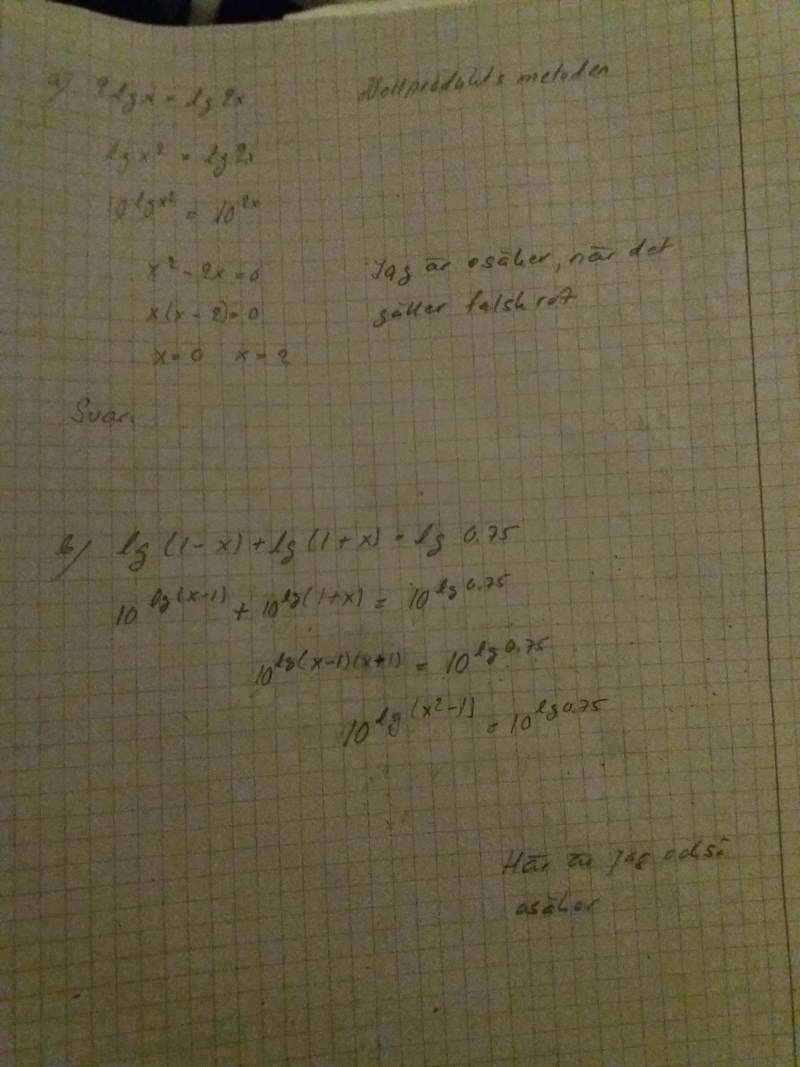 a) 2 lg x = lg 2x Nollprodukts metoden
lg x² = lg 2x
10^lg x² = 10^2x
x² - 2x = 0 Jag är osäker, när det
x(x - 2) = 0 gäller falsk rot
x = 0 x = 2
Svar:
b) lg (1 - x) + lg (1 + x) = lg 0.75
10^lg(x-1) + 10^lg(1+x) = 10^lg 0.75
10^lg(x-1)(x+1) = 10^lg 0.75
10^lg(x²-1) = 10^lg 0.75
Här är jag också
osäker